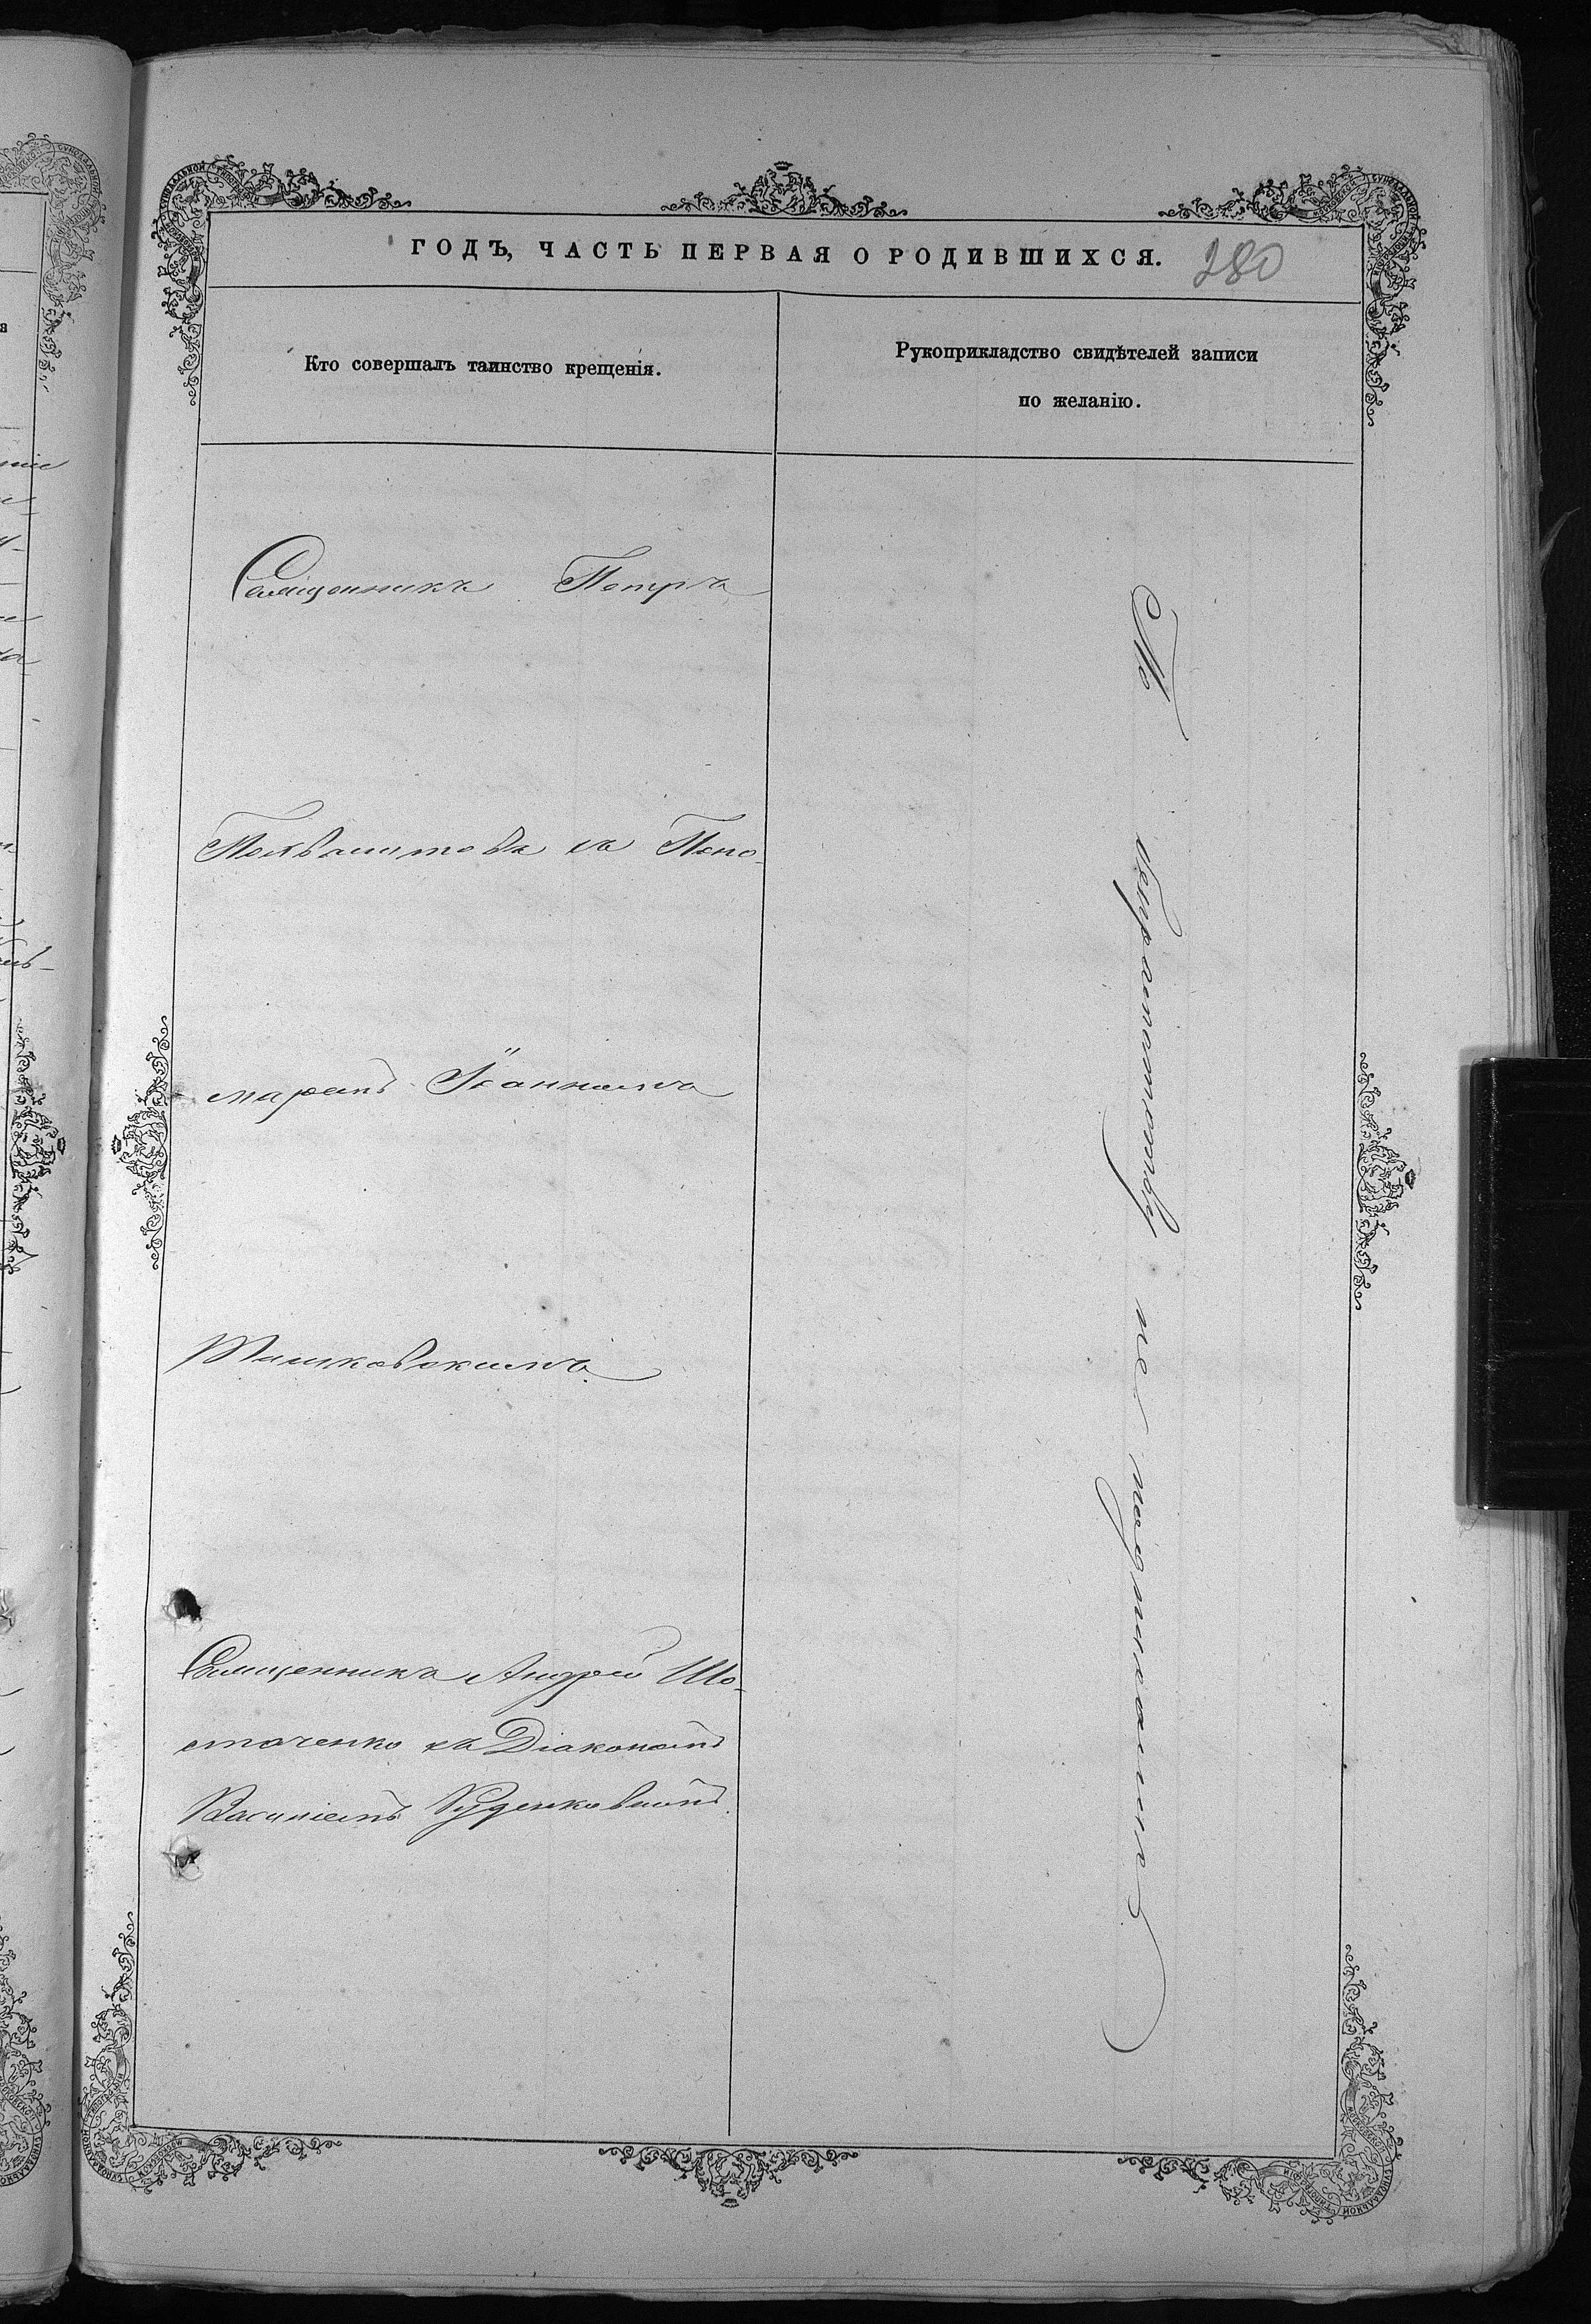 ГОДЪ, ЧАСТЬ ПЕРВАЯ О РОДИВШИХСЯ. 280
Кто совершалъ таинство крещенія.
Рукоприкладство свидѣтелей записи
по желанію.
Священникъ Петръ
съ Поно-
маремъ Іоанномъ
Священникъ Андрей Шо-
стаченко съ Діакономъ
Василіемъ
По неграмотству не подписались